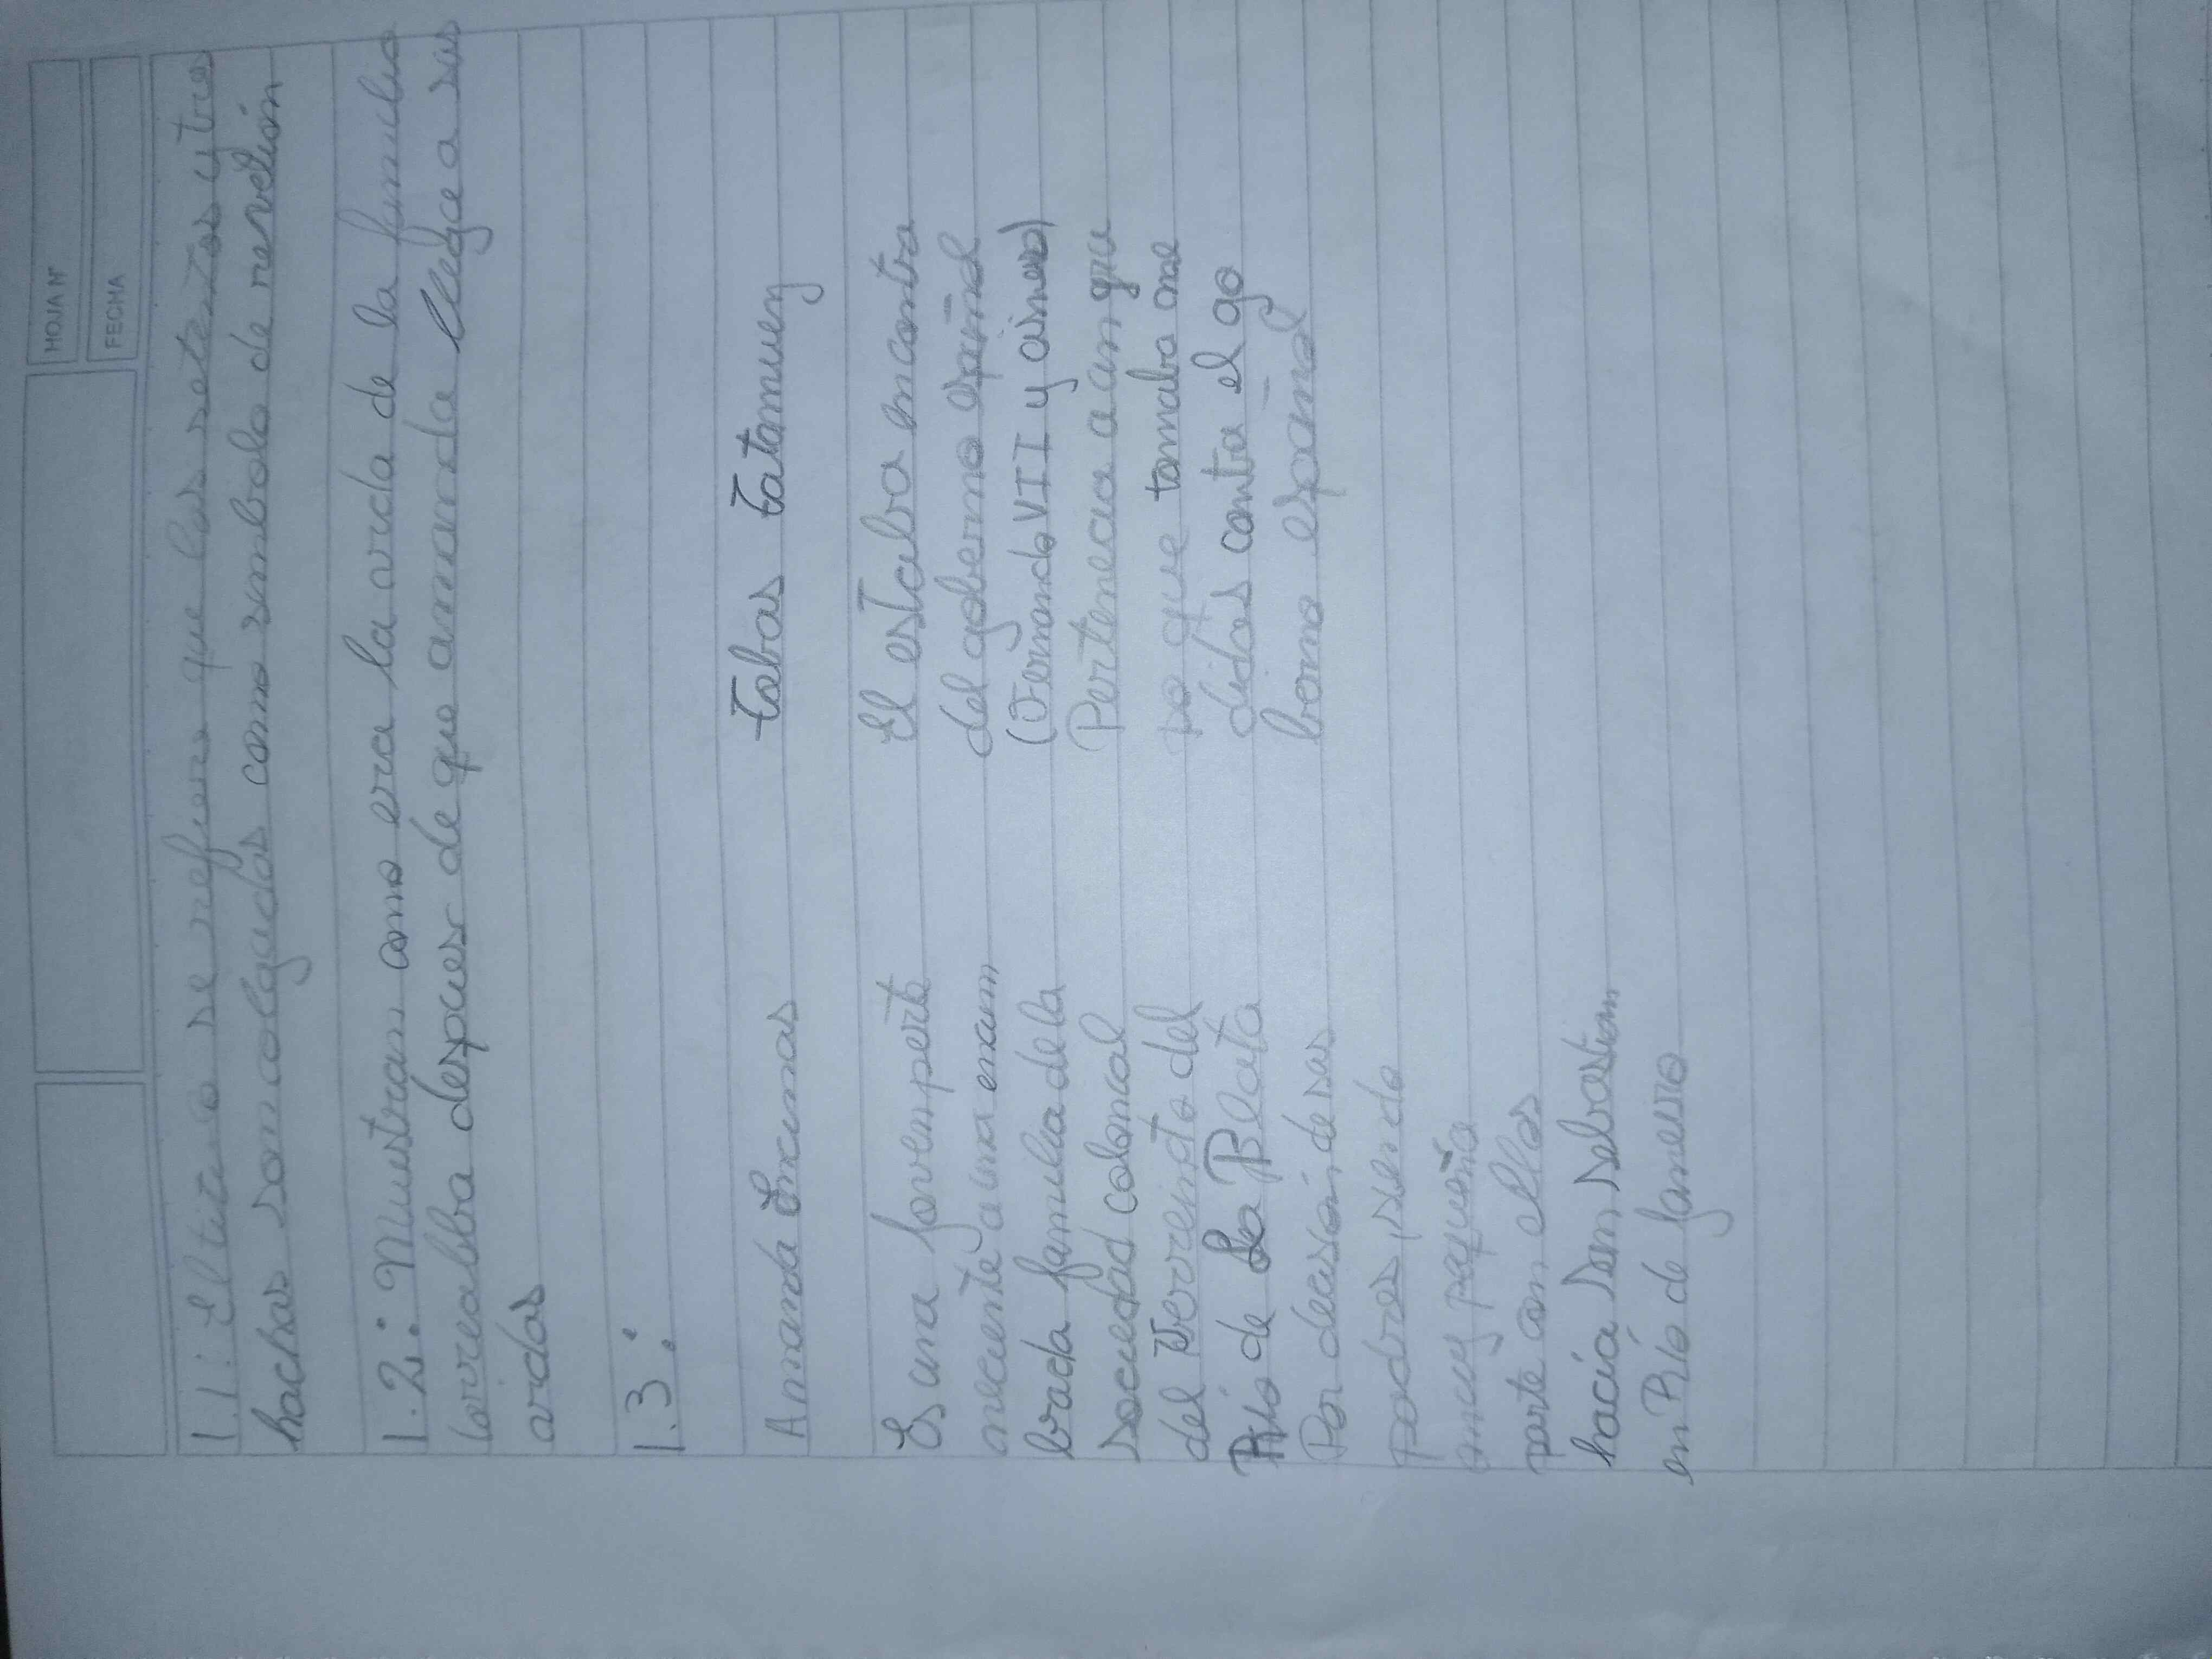 HOJA Nº
FECHA
1.1: El titulo se refiere que los setentas y tres
hachas son colgados como simbolo de revelión
1.2: Muestran como era la vida de la familia
torrealba despues de que amanda llega a sus
vidas
1.3:
Amanda Encinas
Es una joven perte
neciente a una encum
brada familia de la
sociedad colonial
del Virreinato del
Río de La Plata
Por decisión de sus
padres, siendo
muy pequeña
parte con ellos
hacia San Sebastian
en Río de Janeiro
tobas tatamuez
El estaba encontra
del gobierno español
(Fernando VII y
Pertenecia a un gru
po que tomaba me
didas contra el go
bierno español